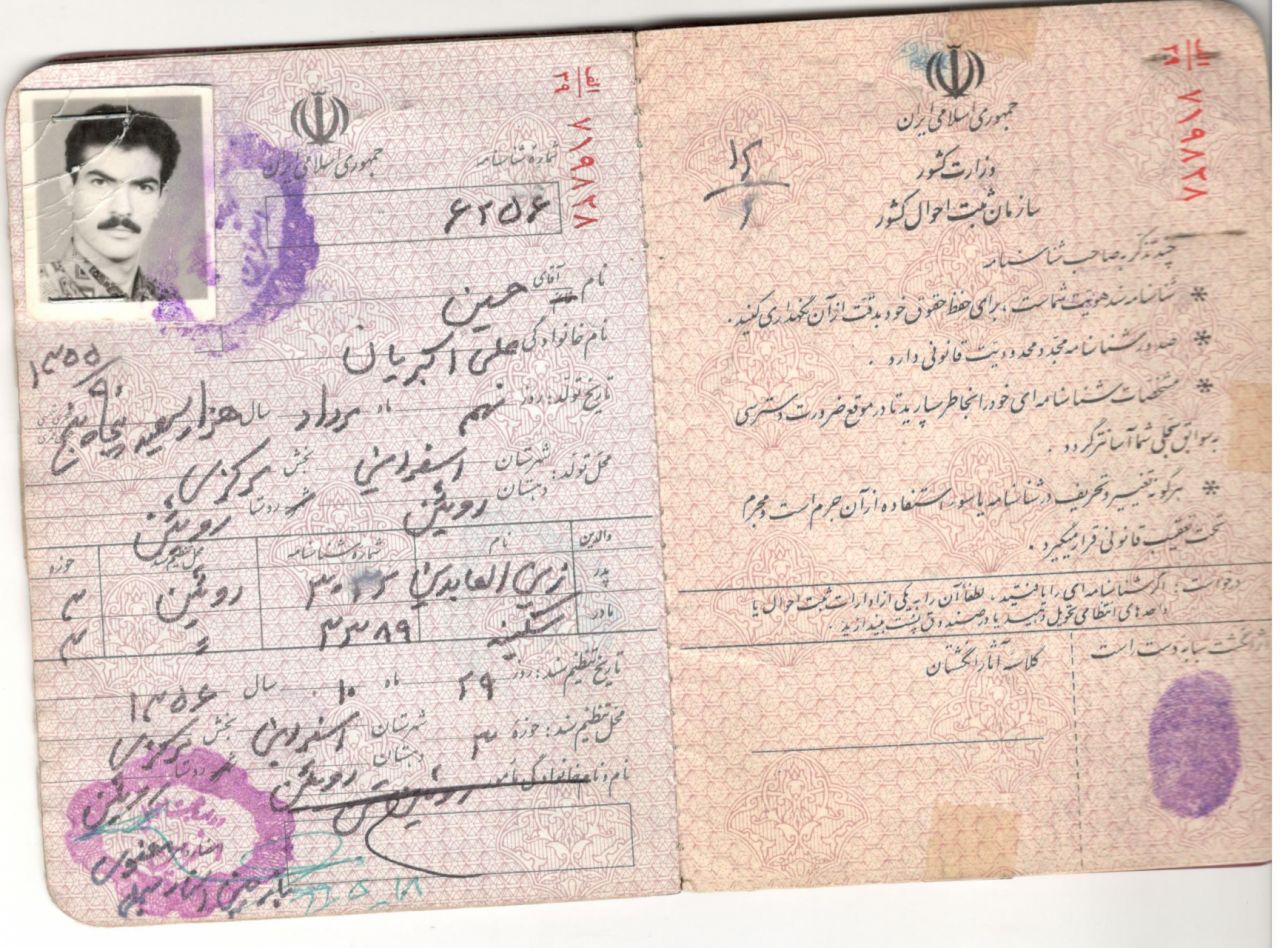 الف
۳۹
۷۱۹۸۲۸
جمهوری اسلامی ایران
وزارت کشور
سازمان ثبت احوال کشور
۱۵
چند تذکر به صاحب شناسنامه
* شناسنامه سند هویت شماست ، برای حفظ حقوق خود بدقت از آن نگهداری کنید .
* صدور شناسنامه مجدد محدودیت قانونی دارد .
* مشخصات شناسنامه ای خود را بخاطر بسپارید تا در موقع ضرورت دسترسی
به سوابق سجلی شما آسانتر گردد .
* هرگونه تغییر و تحریف در شناسنامه یا سوء استفاده از آن جرم است و مجرم
تحت تعقیب قانونی قرار میگیرد .
درخواست : اگر شناسنامه ای را یافتید ، لطفاً آن را به یکی از ادارات ثبت احوال یا
واحدهای انتظامی تحویل دهید یا در صندوق پست بیندازید .
اثر انگشت سبابه دست راست
کلاسه آثار انگشتان
الف
۳۹
۷۱۹۸۲۸
جمهوری اسلامی ایران
شماره شناسنامه
۶۲۵۶
نام آقای حسین
نام خانوادگی علی اکبریان
۱۳۵۵
تاریخ تولد : روز نهم ماه مرداد سال هزار سیصد پنجاه پنج
محل تولد : شهرستان اسفراین بخش مرکزی
دهستان روئین روستا روئین
والدین نام شماره شناسنامه محل تنظیم سند حوزه
پدر زین العابدین روئین ۳
مادر سکینه ۳۳۸۹ ۳
تاریخ تنظیم سند : روز ۲۹ ماه ۱۰ سال ۱۳۵۶
محل تنظیم سند : حوزه ۳ شهرستان اسفراین بخش مرکزی
دهستان روئین روستا روئین
نام و نام خانوادگی مأمور